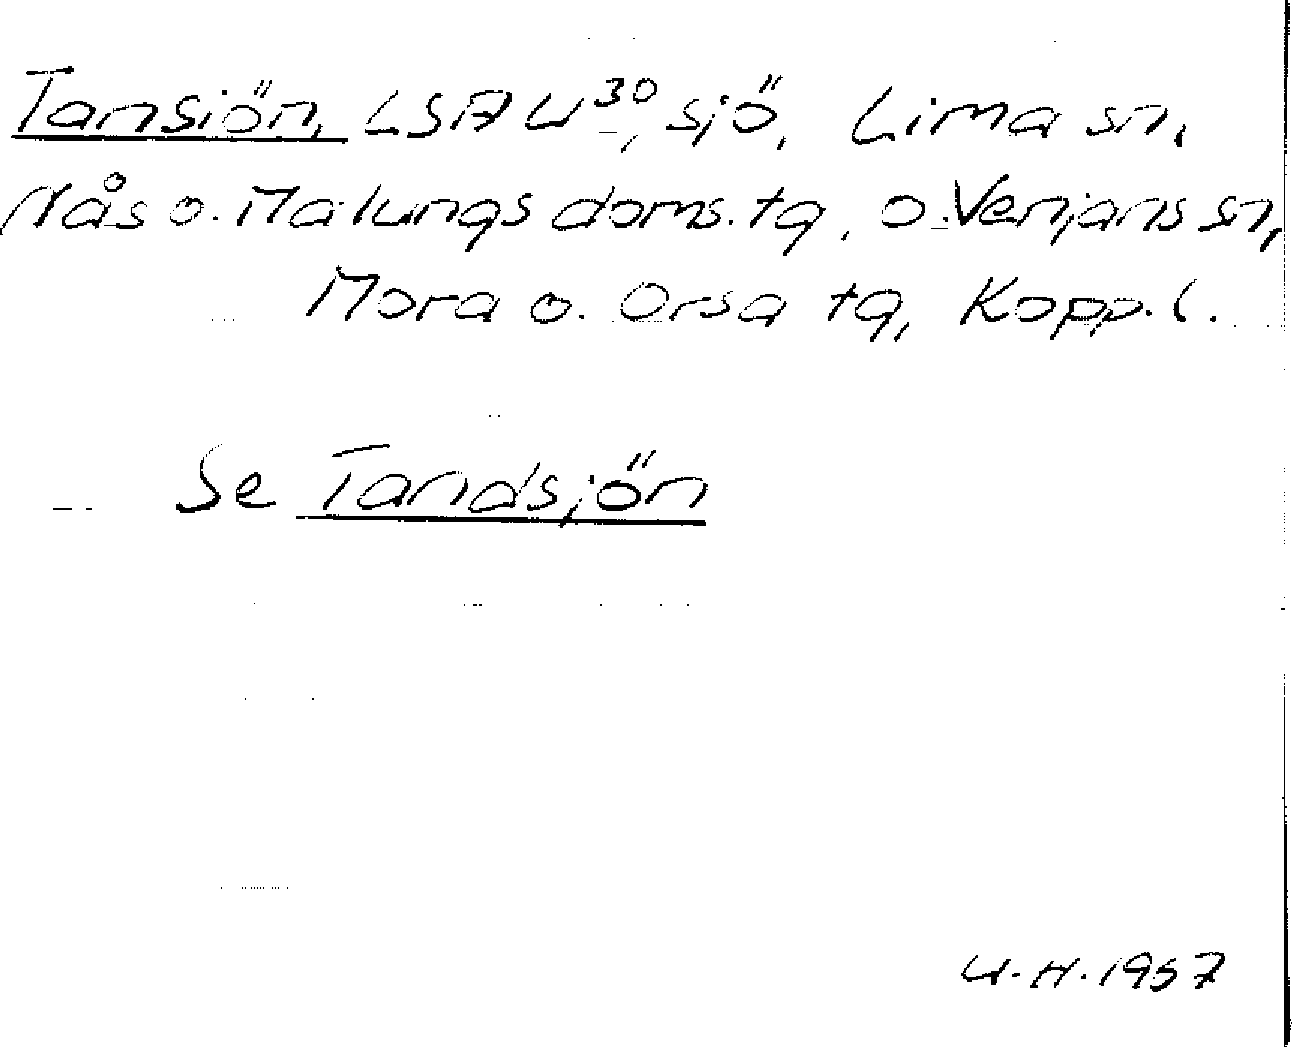 Tansiön, LSA U³⁰, sjö, Lima sn,
Nås o. Malungs doms. tg, o. Venjans sn,
Mora o. Orsa tg, Kopp. l.
Se Tandsjön
U.H. 1957